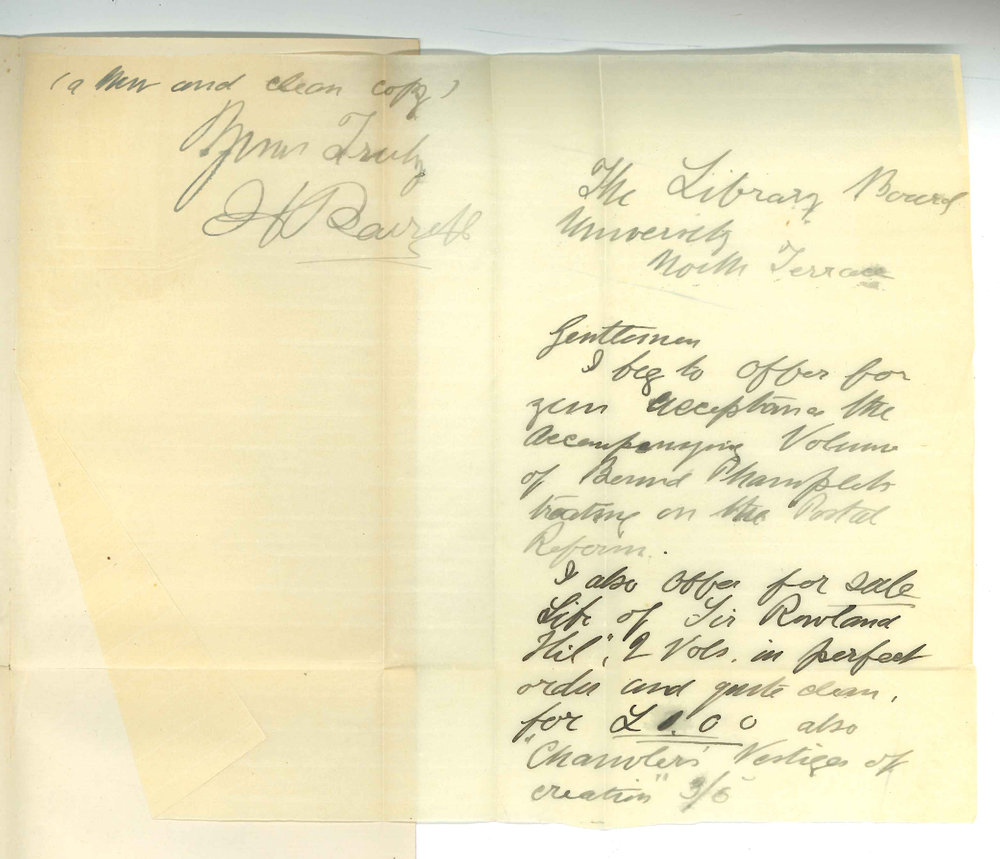 The Library Board
University
North Terrace
Gentlemen
I beg to offer for
your acceptance the
Accompanying Volume
of Bound Phamplets
treating on the Postal
Reform.
I also offer for sale
Life of Sir Rowland
Hil", 2 Vols. in perfect
order and quite clean,
for £1.0 0 also
"Chamber's Vestiges of
creation" 3/6
(a New and clean copy)
Yours Truly